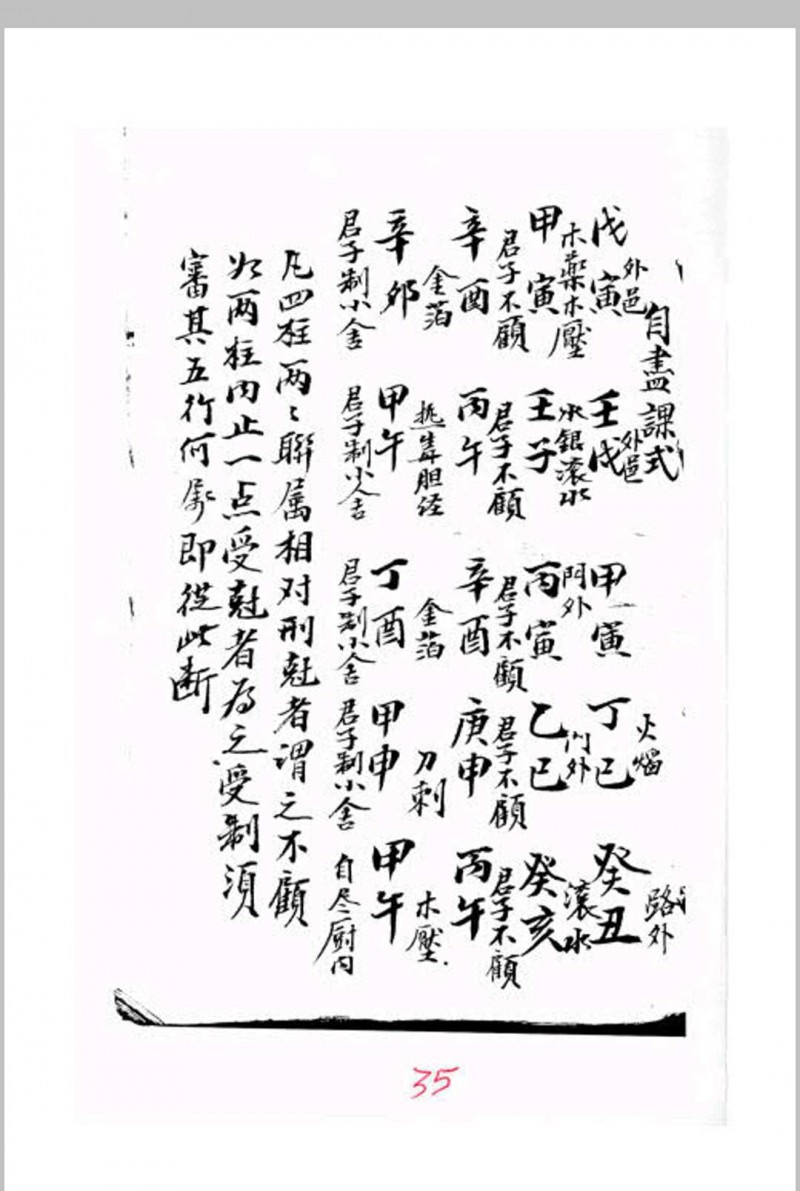 自盡課式
火焰 路外
外邑 外邑
戊寅 壬戌 甲寅 丁巳 癸丑
木藥木壓 水銀滾水 門外 门外 滾水
甲寅 壬子 丙寅 乙巳 癸亥
君子不顧 君子不顧 君子不顧 君子不顧 君子不顧
辛酉 丙午 辛酉 庚申 丙午
金箔 毒胆经 金箔 刀刺 木壓
辛卯 甲午 丁酉 甲申 甲午
君子制小舍 君子制小人舍 君子制小舍 君子制小舍 自尽厨内
凡四柱两々聯属相对刑尅者谓之不顧
如两柱内止一点受尅者为之受制須
審其五行何屬即從此断
35